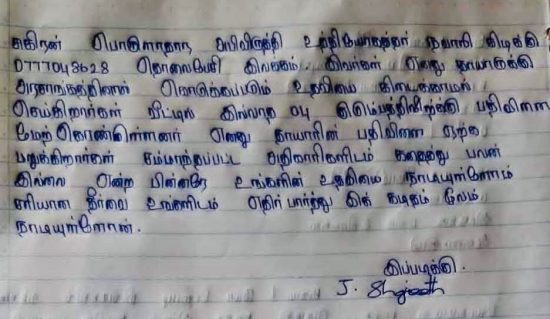 சுகிதன் பொருளாதார அபிவிருத்தி உத்தியோகத்தர் நவாலி கிழக்கு
0777048628 தொலைபேசி இலக்கம். இவர்கள் எனது தாயாருக்கு
அரசாங்கத்தினால் கொடுக்கப்படும் உதவியை கிடைக்காமல்
செய்கிறார்கள் வீட்டில் இல்லாத 04 குடும்பத்திற்கு பதிவினை
மேற்கொண்டுள்ளனர் எனது தாயாரின் பதிவினை ஏற்க
மறுக்கிறார்கள் சம்மந்தப்பட்ட அதிகாரிகளிடம் கதைத்து பலன்
இல்லை என்ற பின்னரே உங்களின் உதவியை நாடியுள்ளோம்
சரியான தீர்வை உங்களிடம் எதிர் பார்த்து இக் கடிதம் மூலம்
நாடியுள்ளேன்.
இப்படிக்கு.
J.